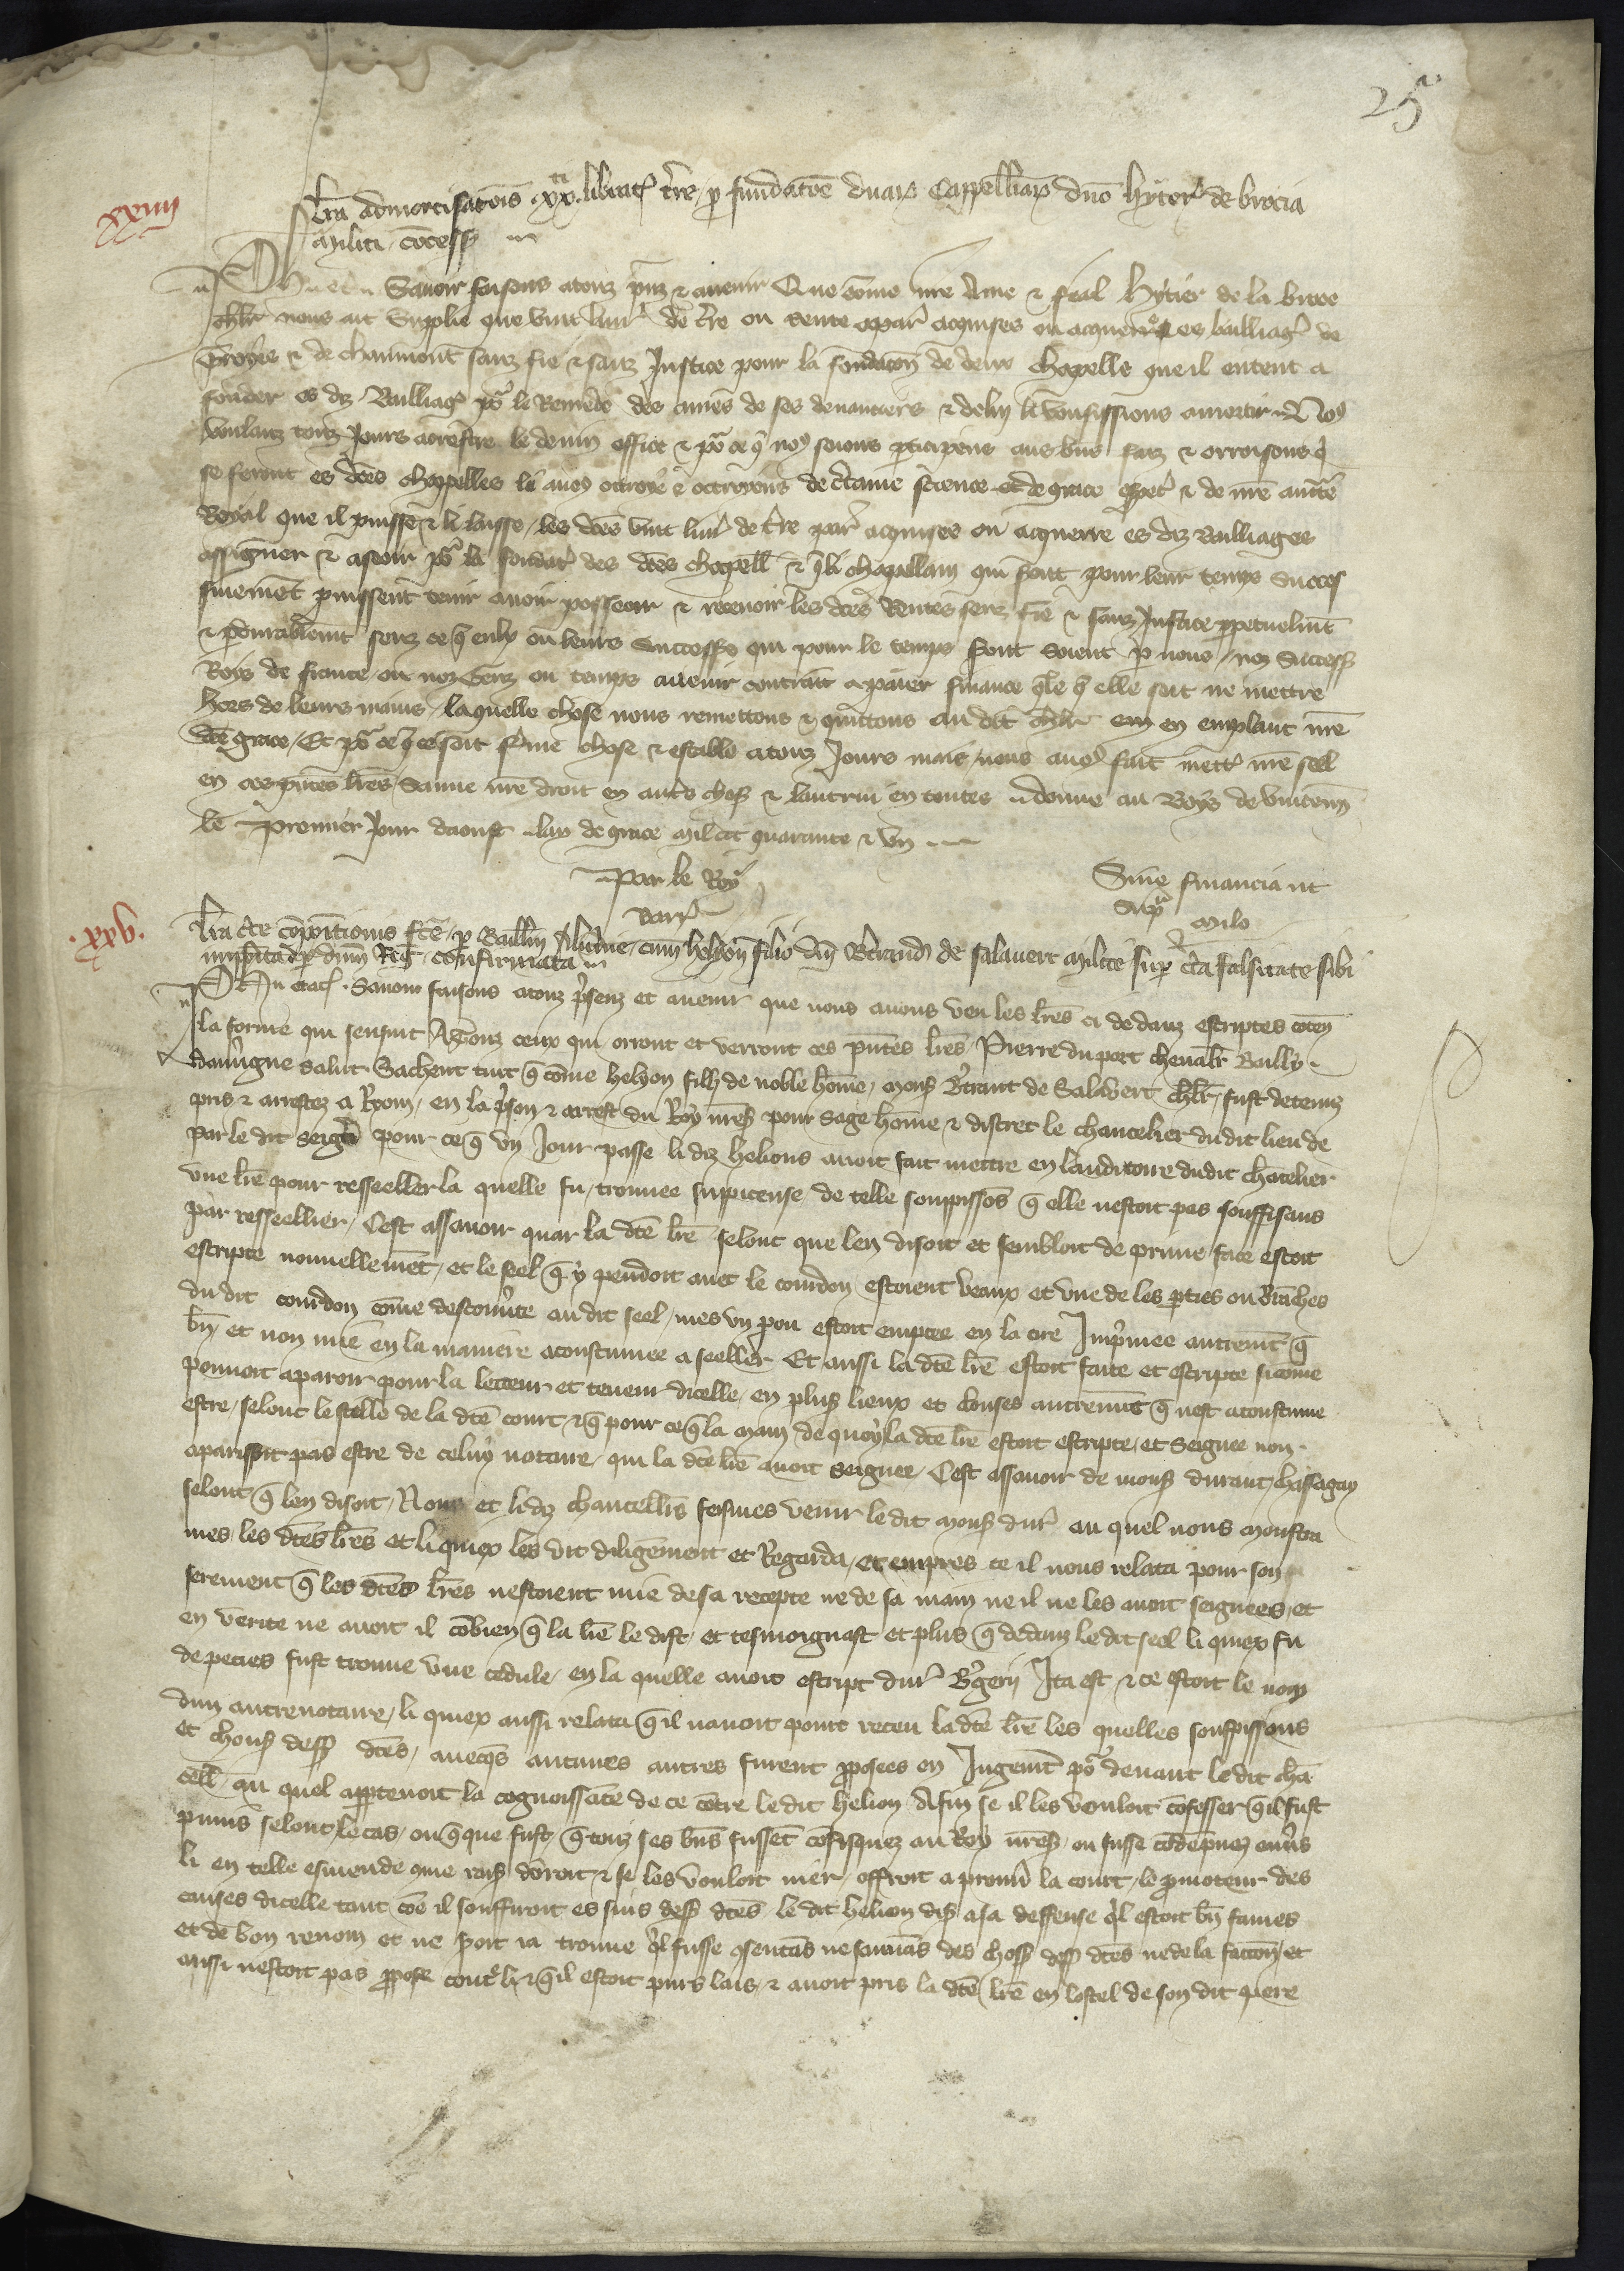 25
xxiiii
lr̃a admortisac̃ois xx ti librat tr̃re p fundatõe duaꝝ Cappelliaꝝ dño hyter de brocia
militi cõcess
Ph etc̃ Savoir faisons atouz p̃nz ⁊ avenir Que cõme nr̃e Ame ⁊ feal hytier de la broce
chlr nous ait Supplie que vint livr de t̃re ou rente apar acquises ou acquerre es bailliag de
Troyes ⁊ de chaumont sanz fie ⁊ sanz Justice pour la fondacõn de deux chapelle que il entent a
fonder es diz Bailliag po le Remede des ames de ses devanciers ⁊ de luy li vousissions amortir Noꝯ
voulanz touz Jours acrestre le devin office ⁊ po ce q̃ noꝯ soions p̃ticipens aus biẽs faiz ⁊ orroisons q̃
se feront es dc̃es chappelles li avoꝯ ottroye ⁊ ottroyons de c̃taine science et de grace espec̃ ⁊ de nr̃e auct̃e
Royal que il puisse ⁊ li laisse les dc̃es vint livr de t̃re par acquises ou acquerre es diz Bailliages
assigner ⁊ aseoir po la fondac̃ des dc̃es chapell ⁊ q̃ li chapellain qui sont pour leur temps Succes
sivemẽt puissent tenir avoir posseoir ⁊ recevoir les dc̃es Rentes senz fie ⁊ sanz Justice p̃petuelmẽt
⁊ p̃durablemẽt senz ce q̃ eulx ou leurs Successo qui pour le temps seront soient p nous noz Success
Roys de france ou noz Genz ou temps avenir contraīt a paier finance q̃le q̃ elle soit ne mettre
hors de leurs mains laquelle chose nous remettons ⁊ quittons au dit chlr em en emplant nr̃e
dc̃e grace Et po ce q̃ ce soit ferme chose ⁊ estable a touz Jours mais nous avoꝯ fait mett nr̃e seel
en ces p̃ntes lr̃es Sauve nr̃e droit en autˢ chos ⁊ lautrui en toutes donne au Boys de vincenñ
le Premier Jour daoust lan de grace mil ccc quarante ⁊ un
Par le Roy
Sine financia ut
Sup̃
Milo
Barr
.xxv.
lr̃a c̃te cõpoitionis fc̃e p Bailliũ Alv̓nie cum helyon filio dñi Bertrandi de salavert milite sup c̃ta falsitate sibi
imposita p dñm Regẽ confirmata
Ph etc̃ Savoir faisons atouz p̃senz et avenir que nous avons veu les lr̃es ci dedanz escriptes cõten
la forme qui sensuit A Touz ceux qui orront et verront ces p̃ntes lr̃es Pierre du port chevalr Bailly
dauv̓gne salut Sachent tuit q̃ cõme helyon filz de noble hõme mons B̓trant de Salavert chlr fust detenuz
pris ⁊ arrestez a Ryom en la p̓son ⁊ arrest du Roy nr̃es pour sage hõme ⁊ discret le chancelier dudit lieu de
par le dit seignr pour ce q̃ un Jour passe li diz helions avoit fait mettre en lauditoire dudit chãcelier
une lr̃e pour resseeller la quelle fu trouvee suppicense de telle souppissoñs q̃ elle nestoit pas souffisans
par resseellier Cest assavoir quar la dc̃e lr̃e selont que len disoit et sembloit de prime face estoit
escripte nouvellemẽt et le seel q̃ y pendoit avec le courdon estoient veaux et une de les p̃ties ou brãches
du dit courdon cõme descouv̓te au dit seel mes un pou estoit emptee en la cire Imp̓mee autremt q̃
bñ et non mie en la maniere acoustumee a seeller Et aussi la dc̃e lr̃e estoit faite et escripte sicõme
pouvoit aparoir pour la letteur et teneur dicelle en plus lieux et clauses autremt q̃ nest acoustume
estre selont le stille de la dc̃e court ⁊ q̃ pour ce q̃ la main de quoy la dc̃e lr̃e estoit escripte et seignee non
aparissoit pas estre de celuy notaire qui la dc̃e lr̃e avoit seignee Cest assavoir de mons durant chassagay
selont q̃ len disoit Nous et li diz chancelliẽs feismes venir le dit mons dur au quel nous monstra
mes les dc̃es lr̃es et li quiex les vit diligemẽt et Regarda et empres ce il nous relata pour son
serement q̃ les dc̃es lr̃es nestoient mie de sa recepte ne de sa main ne il ne les avoit seignees et
en verite ne avoit il cõbien q̃ la lr̃e le dist et tesmoignast et plus q̃ dedanz le dit seel li quiex fu
depecies fust trouve une cedule en la quelle avoit escript dur B̓gerii Ita est ⁊ ce estoit le nom
dun autre notaire li quiex aussi relata q̃ il navoit point receu la dc̃e lr̃e les quelles souspissons
et chouses dess dc̃es avecqs aucunes autres furent p̃posees en Jugemt po devant le dit chã
cell au quel app̃tenoit la cognoissãce de ce cõtre le dit helion Afin se il les vouloit cõfesser q̃ il fust
punis selont le cas ou q̃ que fust q̃ touz ses bñs fussẽt cõfisquez au Roy nr̃es ou fusse cõdepnez env̓s
li en telle esmende que rais dõroit ⁊ se les vouloit nier offroit a prouv̓ la court le p̃moteur des
causes dicelle tant cõe il souffiroit es fins dess dc̃es le dit helion dis a sa deffense q̓l estoit bñ fames
et de bon renom et ne soit ia trouve q̓l fusse cõsentãs ne savãs des chos dess dc̃es ne de la faccõn et
aussi nestoit pas p̃pose cont̓ li ⁊ q̃ il estoit purs lais ⁊ avoit pris la dc̃e lr̃e en lostel de son dit pere